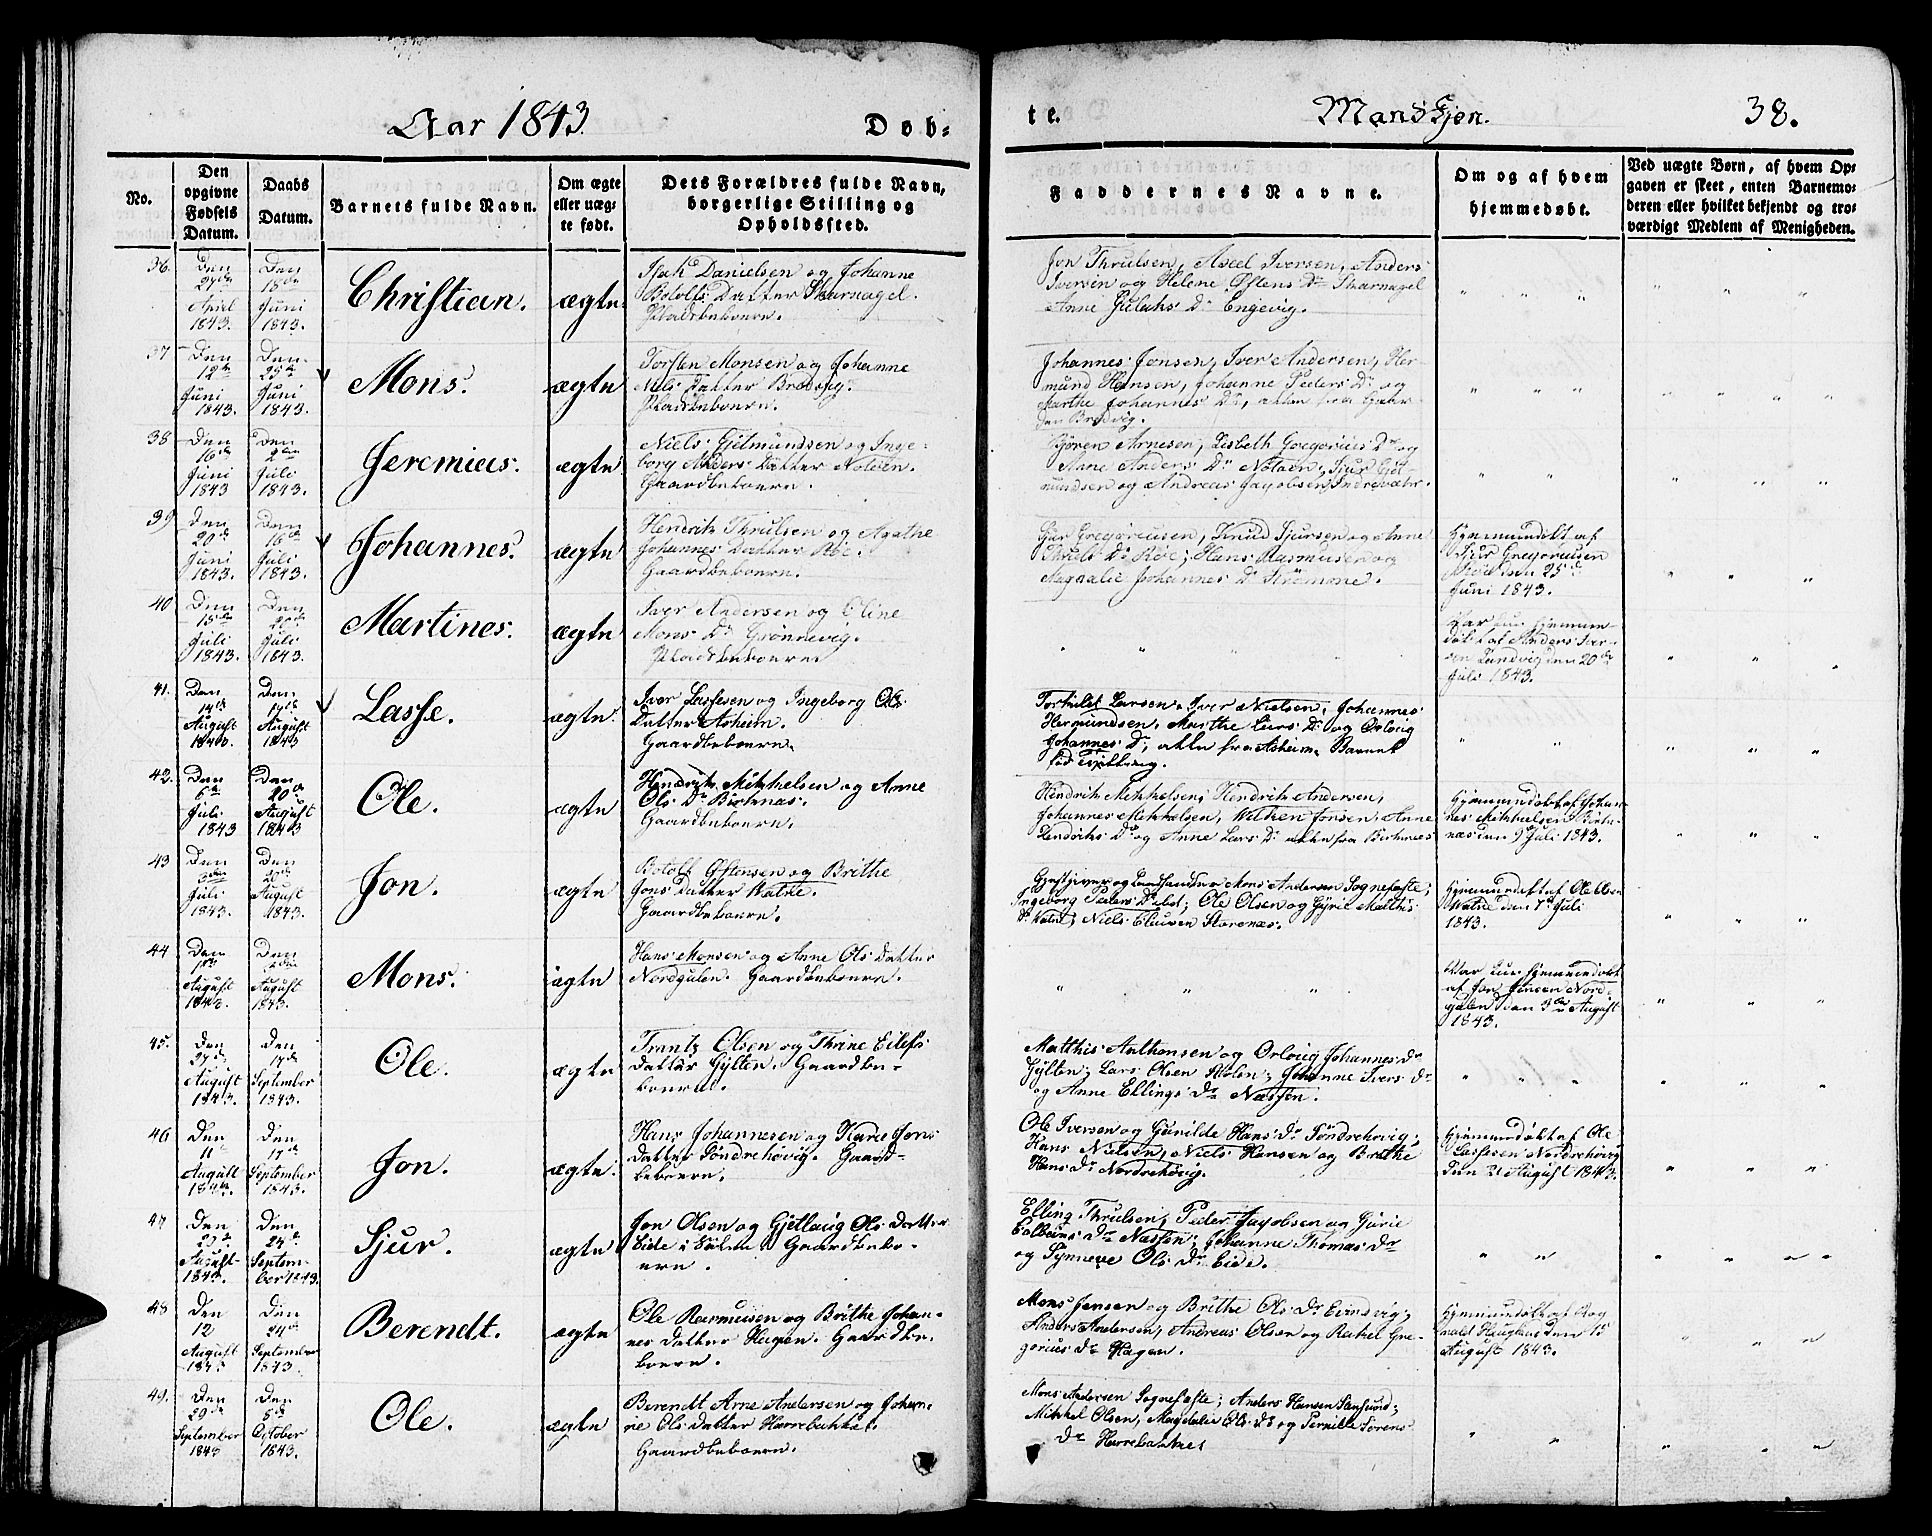 Aar 1843.
Døb-
te.
Mandkjøn.
38.
No.
Den
opgivne
Fødsels
Datum.
Daabs
Datum.
Barnets fulde Navn.
Om ægte
eller uæg-
te født.
Dets Forældres fulde Navn,
borgerlige Stilling og
Opholdssted.
Faddernes Navne.
Om og af hvem
hjemmedøbt.
Ved uægte Børn, af hvem Op-
gaven er skeet, enten Barnemo-
deren eller hvilket bekjendt og tro-
værdigt Medlem af Menigheden.
36.
Den
April
1843.
Den
18de
Juni
1843.
Christian.
ægte.
Isak Danielsen og Johanne
Botolfs Datter Skarnagel.
Pladsbeboere.
Jon Thrulsen, Axel Iversen, Anders
Iversen og Helene Østens Dr Skarnagel
Anne Dr Engevig.
37
Den
12te
Juni
1843.
Den
25de
Juni
1843.
Mons.
ægte
Torsten Monsen og Johanne
Nils Datter Brødvig.
Pladsbeboere.
Johannes Jonsen, Iver Andersen, Her-
mund Hansen, Johanne Peders Dr og
Marthe Johannes Dr, alle fra Gaar-
den Brødvig.
38
Den
16de
Juni
1843
Den
2den
Juli
1843.
Jeremias.
ægte
Niels Gjetmundsen og Inge-
borg Anders Datter Notøen.
Gaardbeboere.
Bjøren Arnesen, Lisbeth Gregorius Dr og
Anne Anders Dr Notøen, Sjur Gjet-
mundsen og Andreas Jacobsen Indrevær.
39
Den
20de
Juni
1843.
Den
16de
Juli
1843.
Johannes.
ægte
Hendrik Thrulsen og Agathe
Johannes Datter Røe.
Gaardbeboere.
Sjur Gregoriusen, Knud Sjursen og Anne
Thruls Dr Røe; Hans Rasmusen og
Magdalie Johannes Dr Strømme.
Hjemmedøbt af
Sjur Gregoriusen
Røe den 25de
Juni 1843.
40
Den
15de
Juli
1843.
Den
20de
Juli
1843.
Martines.
ægte
Iver Andersen og Oline
Mons Dr Grønnevig.
Pladsbeboere
Var kun hjemme-
døbt af Anders Iver-
sen Sandvig den 20de
Juli 1843.
41.
Den
14de
August
1843.
Den
17de
August
1843
Lasse.
ægte.
Iver Lassesen og Ingeborg Ols
Datter Asheim.
Gaardbeboere.
Torkild Larsen, Iver Nielsen, Johannes
Hermundsen, Marthe Lars Dr og Orloug
Johannes Dr, alle fra Asheim. Barnet
fød Tvilling.
42.
Den
6te
Juli
1843
Den
20de
August
1843
Ole.
ægte
Hendrik Mikkelsen og Anne
Ols Dr Birknæs.
Gaardbeboere.
Hendrik Mikkelsen, Hendrik Andersen,
Johannes Mikkelsen, Wilken Jonsen, Anne
Hendriks Dr og Anne Lars Dr alle fra Birknæs
Hjemmedøbt af Johan-
nes Mikkelsen Birk-
næs den 9de Juli 1843.
43
Den
3den
Juli
1843.
Den
20de
August
1843.
Jon.
ægte
Botolf Østensen og Brithe
Jons Datter Watne.
Gaardbeboere.
Gjestgiver og Landhandler Mons Andersen Sognefæste,
Ingeborg Peders Dr ibid; Ole Olsen og Gyrie Matthis
Dr Watne, Niels Storenæs.
Hjemmedøbt af Ole Olsen
Watne den 7de Juli
1843.
44
Den
1ste
August
1843.
Den
August
1843.
Mons.
ægte
Hans Monsen og Anne Ols Datter
Nordgulen. Gaardbeboere.
Var kun hjemmedøbt
af Jon Jensen Nord-
gulen den 3die August
1843.
45.
Den
27de
August
1843.
Den
17de
September
1843.
Ole.
ægte
Frantz Olsen og Thrine Eilefs
Datter Gylten. Gaardbe-
boere.
Matthis Anthonsen og Orloug Johannes Dr
Gylten; Lars Olsen Molen; Johanne Ivers Dr
og Anne Ellings Dr Næssøn.
46
Den
11
August
1843.
Den
17de
September
1843.
Jon.
ægte.
Hans Johannesen og Karie Jons
Datter Søndrehovig. Gaard-
beboere.
Ole Iversen og Gunilde Hans Dr Søndrehovig;
Hans Nielsen, Niels Hansen og Brithe
Hans Dr Nordrehovig.
Hjemmedøbt af Ole
Lassesen Nordrehovig
den 21 August 1843.
47
Den
27de
August
1843.
Den
24de
Septem-
ber 1843.
Sjur.
ægte
Jon Olsen og Gjetloug Ols Datter
Eide i Gulen. Gaardbebo-
ere.
Elling Thrulsen, Peder Jacobsen og Gurie
Colbeins Dr Næssøn; Johanne Thomas Dr
og Synneve Ols Dr Eide.
48
Den
12
August
1843
Den
24de
September
1843.
Berendt.
ægte
Ole Rasmusen og Brithe Johan-
nes Datter Hagen. Gaardbe-
boere.
Mons Jensen og Brithe Ols Dr Evindvig;
Anders Andersen, Andreas Olsen og Rakel Gre-
gorius Dr Hagen.
Hjemmedøbt af Rog
nald Haugland den 15
August 1843.
49.
Den
29de
September
1843
Den
8de
October
1843.
Ole.
ægte
Berendt Arne Andersen og Johan-
ne Ols Datter Harrebakke.
Gaardbeboere.
Mons Andersen Sognefæste; Anders Hansen
Mikkel Olsen, Magdalie Ols Dr og Pernille Sørens
Dr Harrebakke